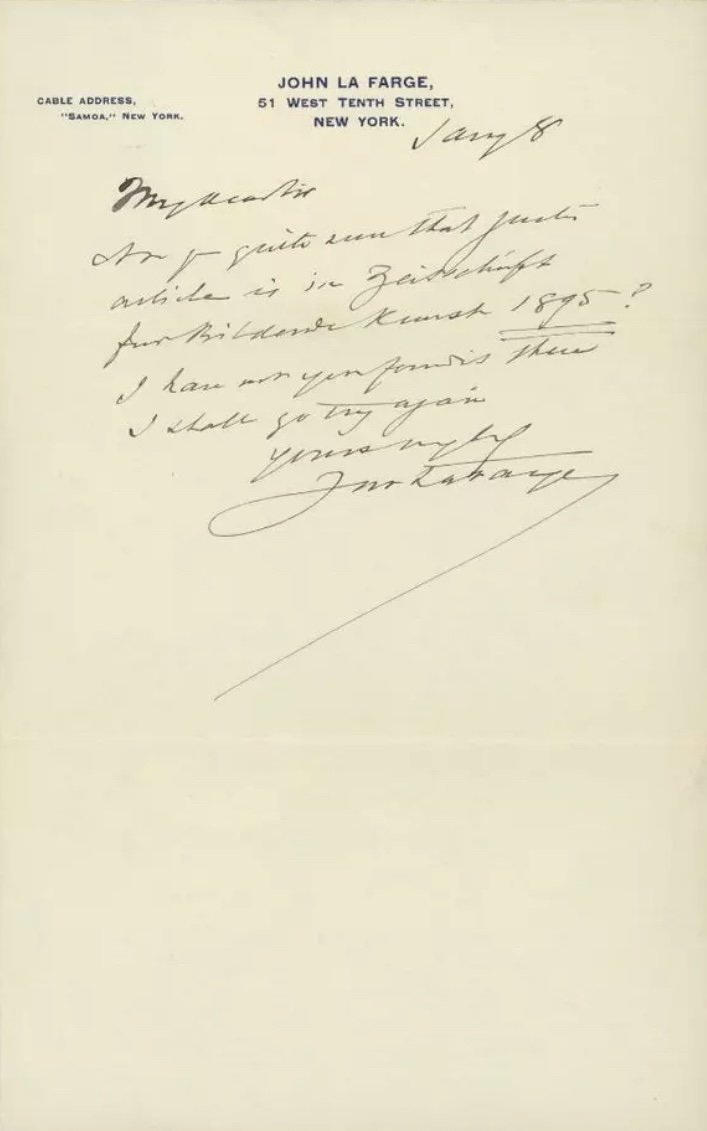 JOHN LA FARGE,
CABLE ADDRESS,
51 WEST TENTH STREET,
"SAMOA," NEW YORK.
NEW YORK.
Jany 8
My dear Sir
Are you quite sure that Justi's
article is in Zeitschrift
fur Bildende Kunst 1895?
I have not yet found it there
I shall go try again
Yours truly
Jno La Farge